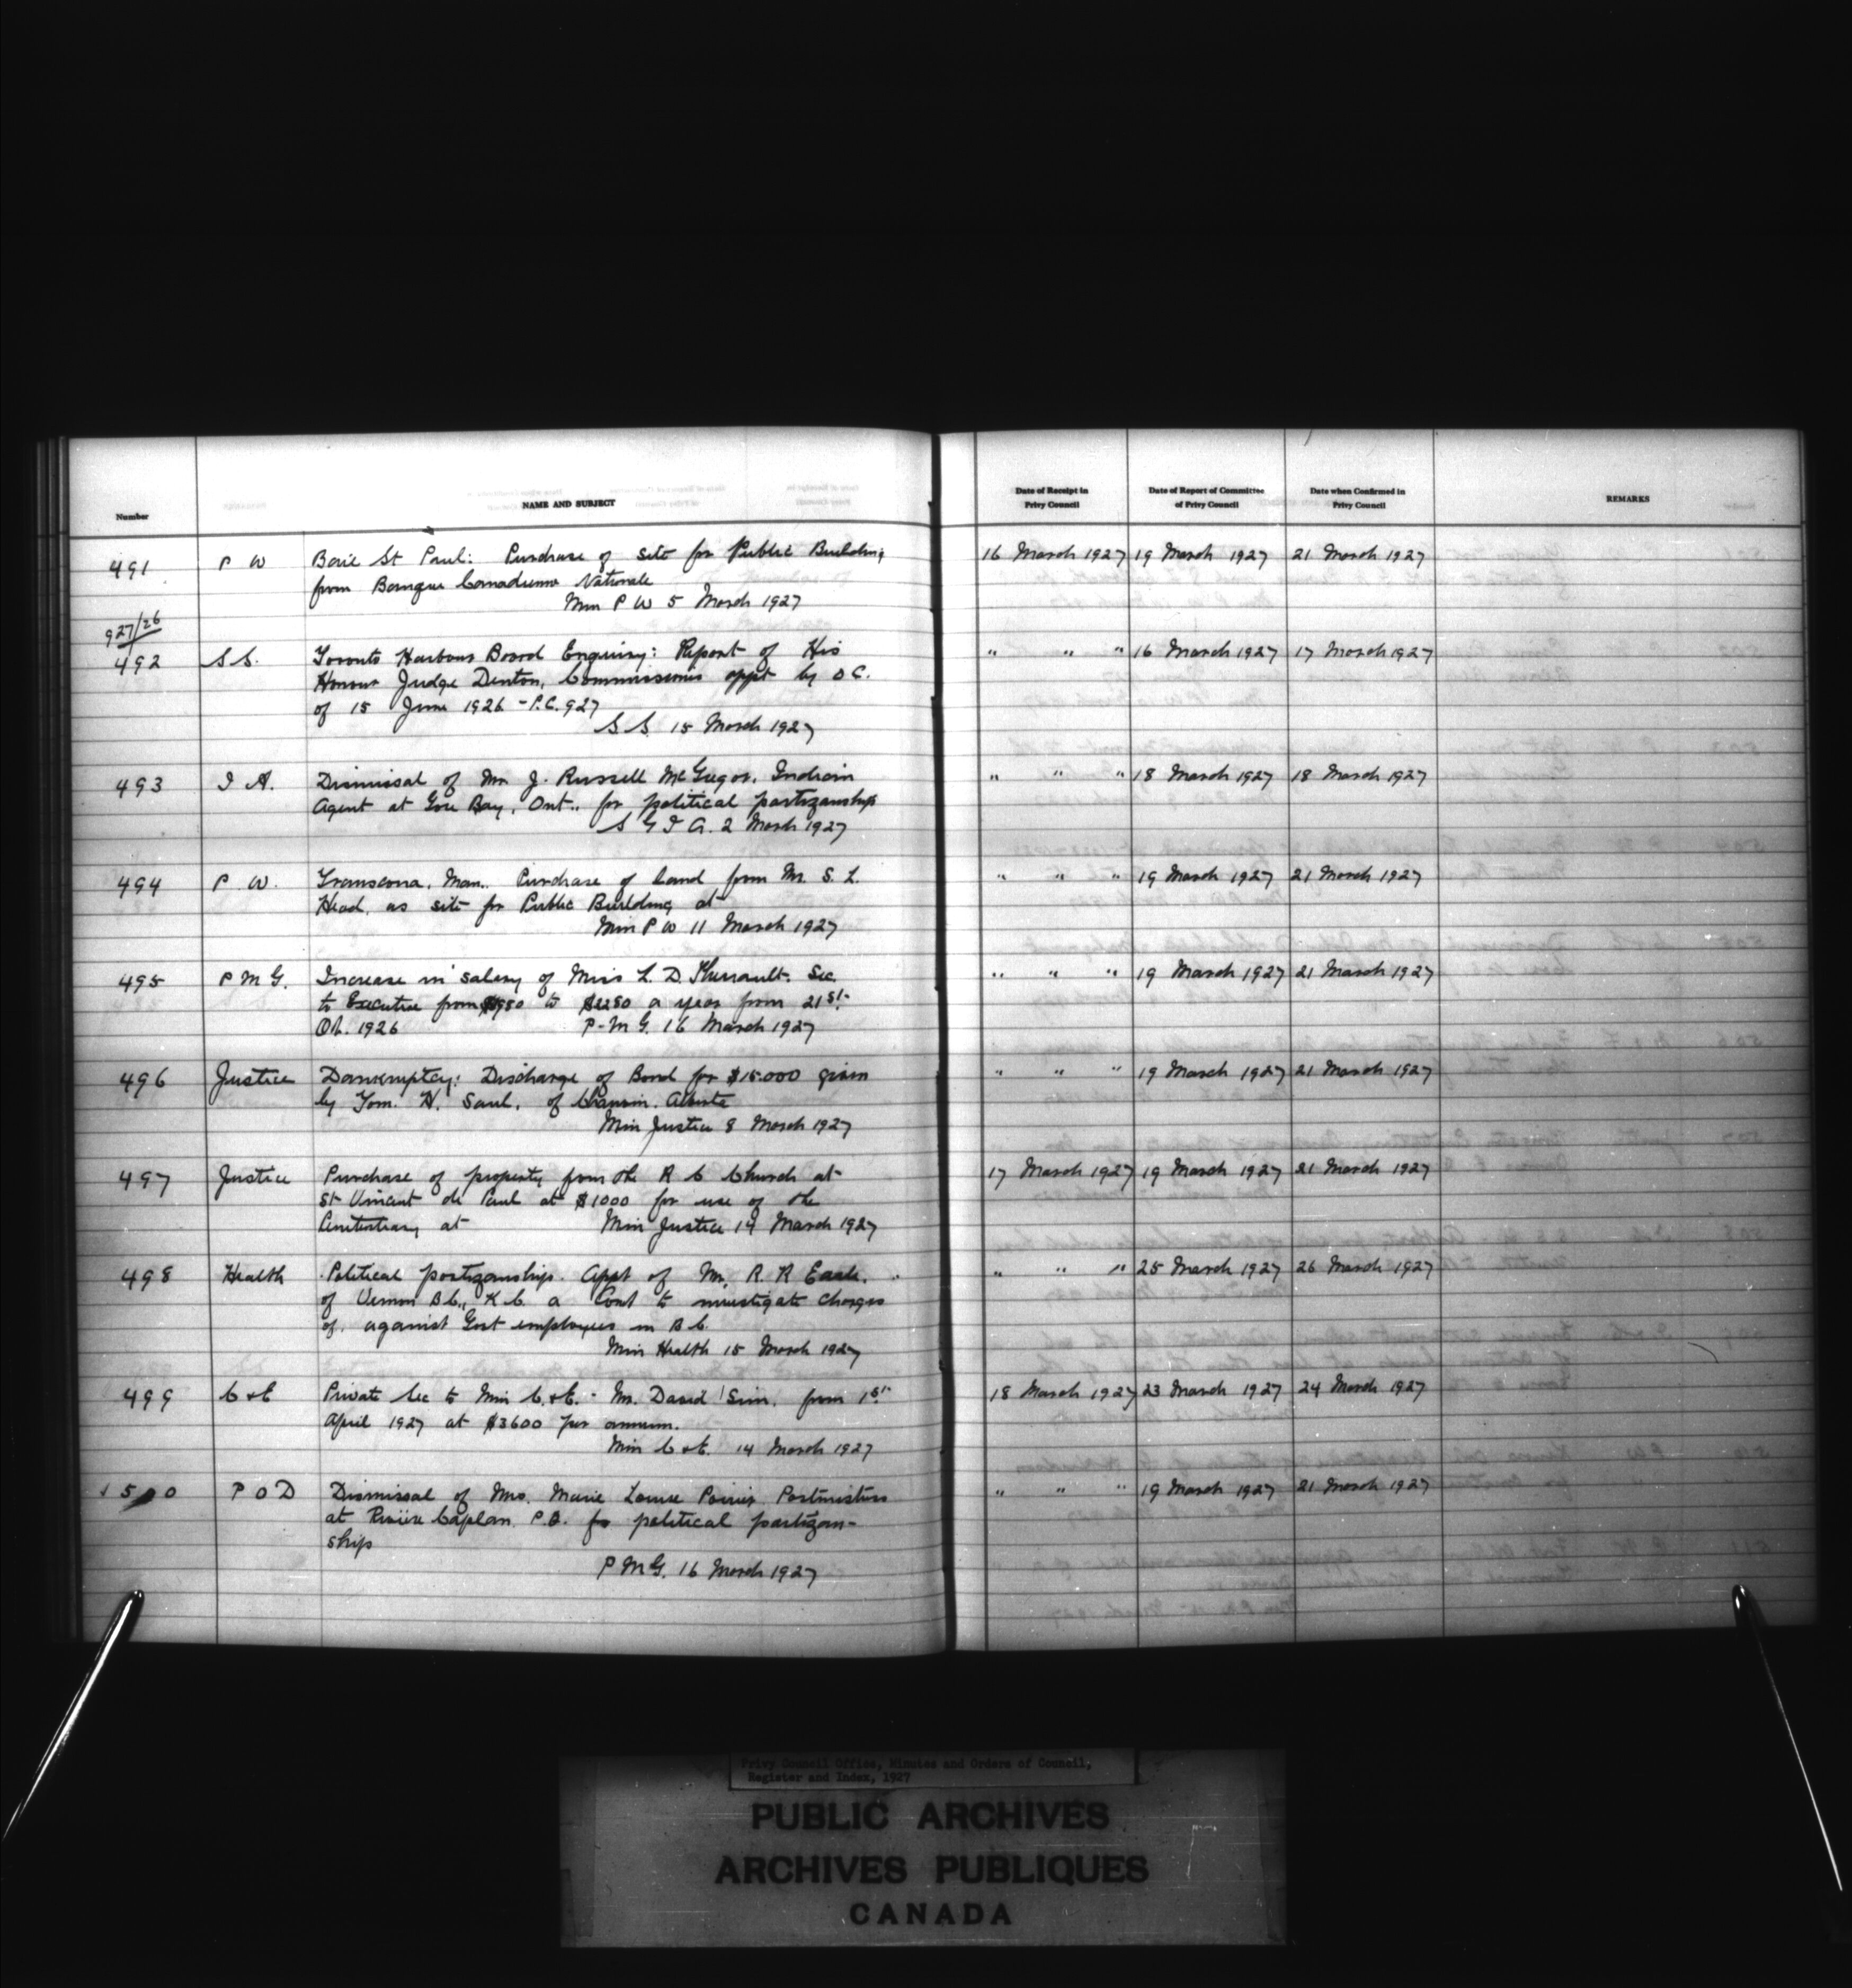 Number NAME AND SUBJECT Date of Receipt in Privy Council Date of Report of Committee of Privy Council Date when Confirmed in Privy Council REMARKS
491 P W Baie St Paul: Purchase of site for Public Building 16 March 1927 19 March 1927 21 March 1927
from Banque Canadienne Nationale
Min P W 5 March 1927
927/26
492 S.S. Toronto Harbour Board Enquiry: Report of His " " " 16 March 1927 17 March 1927
Honour Judge Denton, Commissioner appt by O C.
of 15 June 1926 - P.C. 927
S S. 15 March 1927
493 I A. Dismissal of Mr J. Russell McGregor, Indian " " " 18 March 1927 18 March 1927
Agent at Gore Bay, Ont., for political partizanship
S G I A. 2 March 1927
494 P. W. Transcona, Man. Purchase of land from Mr. S. L. " " " 19 March 1927 21 March 1927
Head, as site for Public Building at
Min P W 11 March 1927
495 P M G. Increase in salary of Miss L. D. Therrault. Sec. " " " 19 March 1927 21 March 1927
to Executive from to $2280 a year from 21st
Oct. 1926 P-M G. 16 March 1927
496 Justice Bankruptcy: Discharge of Bond for $15.000 given " " " 19 March 1927 21 March 1927
by Tom. H. Saul, of Alberta
Min Justice 8 March 1927
497 Justice Purchase of property from the R C Church at 17 March 1927 19 March 1927 21 March 1927
St Vincent de Paul at $1000 for use of the
Penitentiary at Min Justice 14 March 1927
498 Health Political partizanship. Appt of Mr. R. R Earle, " " " 25 March 1927 26 March 1927
of Vernon B C., K C. a to investigate charges
of, against Govt employees in B C.
Min Health 15 March 1927
499 C & E Private Sec to Min C. & E. - Mr. David Sim, from 1st 18 March 1927 23 March 1927 24 March 1927
April 1927 at $3600 per annum.
Min C & E. 14 March 1927
500 P O D Dismissal of Mrs. Marie Louise Poirier Postmistress " " " 19 March 1927 21 March 1927
at Rivière Caplan, P.Q. for political partizan-
ship
P M G. 16 March 1927
Privy Council Office, Minutes and Orders of Council,
Register and Index, 1927
PUBLIC ARCHIVES
ARCHIVES PUBLIQUES
CANADA